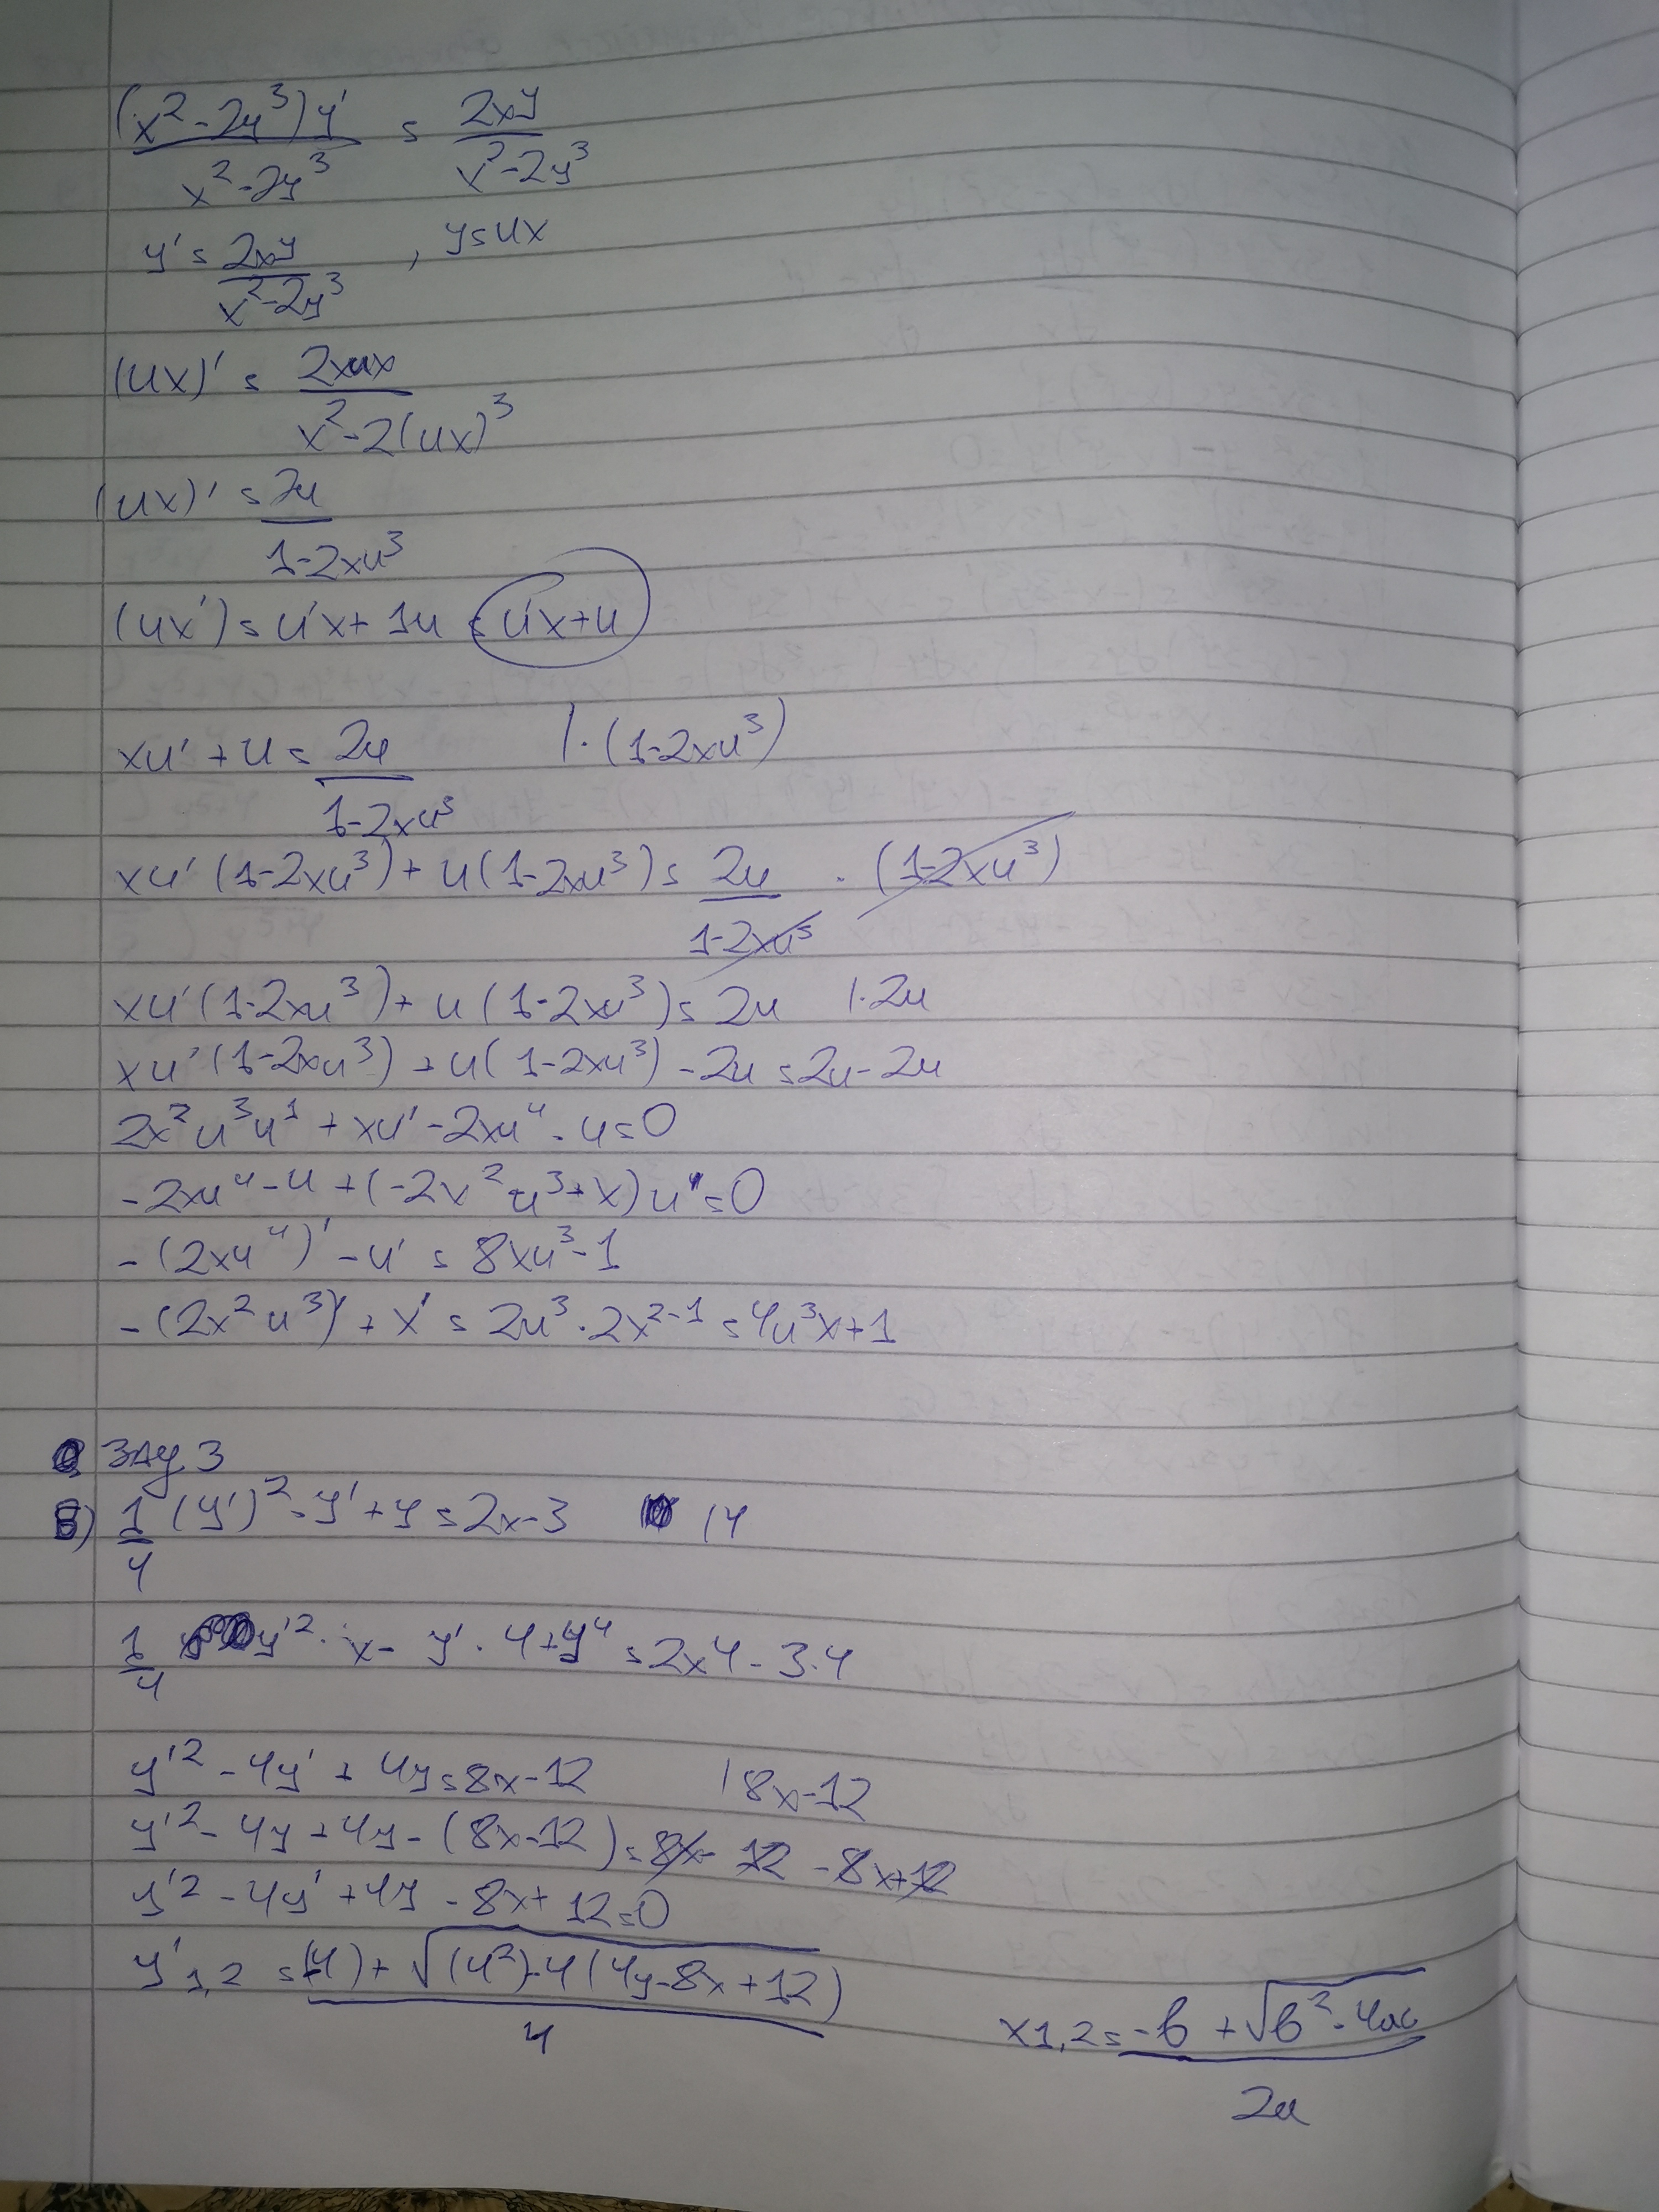 (x² - 2y³)y' / x² - 2y³ = 2xy / x² - 2y³
y' = 2xy / x² - 2y³ , y = ux
(ux)' = 2xux / x² - 2(ux)³
(ux)' = 2u / 1 - 2xu³
(ux') = u'x + 1u = u'x + u
xu' + u = 2u / 1 - 2xu³ | · (1 - 2xu³)
xu' (1 - 2xu³) + u (1 - 2xu³) = 2u / 1 - 2xu³ · (1 - 2xu³)
xu' (1 - 2xu³) + u (1 - 2xu³) = 2u | · 2u
xu' (1 - 2xu³) + u (1 - 2xu³) - 2u = 2u - 2u
2x² u³u¹ + xu' - 2xu⁴ - u = 0
-2xu⁴ - u + (-2x² u³ + x) u' = 0
- (2xu⁴)' - u' = 8xu³ - 1
- (2x² u³)' + x' = 2u³ · 2x²⁻¹ = 4u³x + 1
зад 3
Б) 1/4 (y')² - y' + y = 2x - 3 | 4
1/4 y'² · x - y' · 4 + y⁴ = 2x4 - 3.4
y'² - 4y' + 4y = 8x - 12 | 8x - 12
y'² - 4y + 4y - (8x - 12) = 8x - 12 - 8x + 12
y'² - 4y' + 4y - 8x + 12 = 0
y'1,2 = (4) + √(4²) - 4 (4y - 8x + 12) / 4
x1,2 = -b + √b² - 4ac / 2a